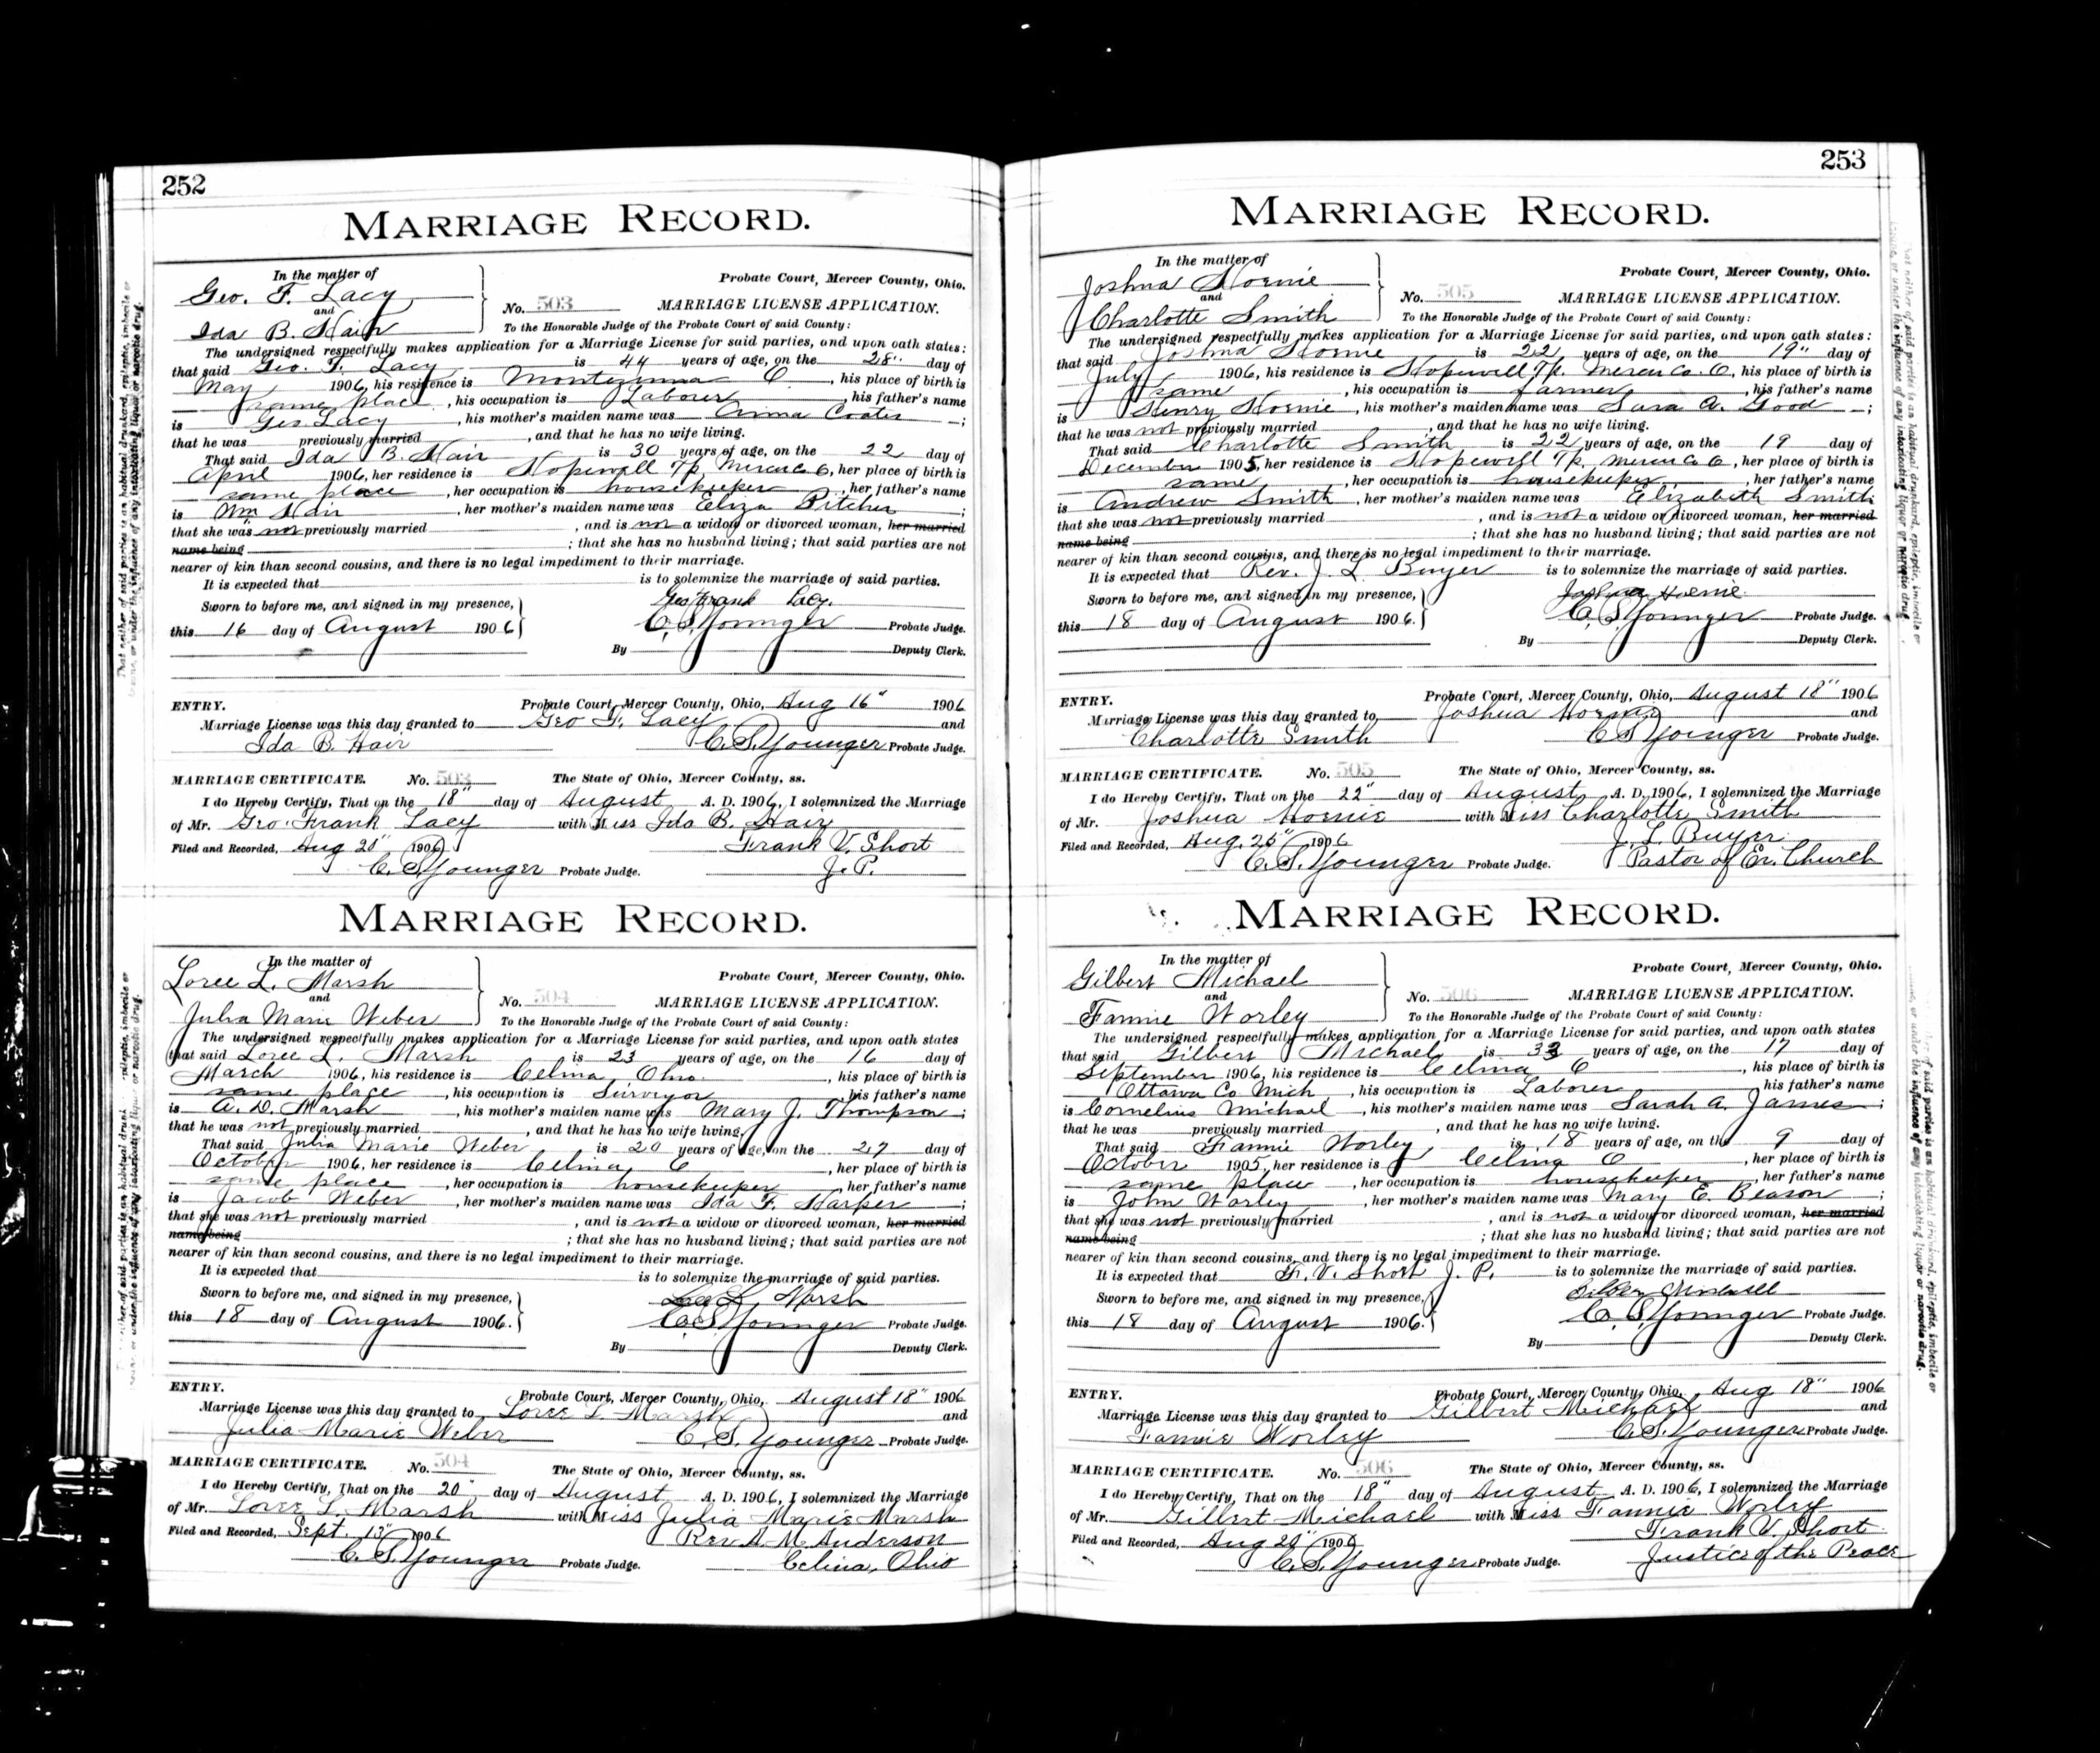 252
MARRIAGE RECORD.
In the matter of
Geo. F. Lacy
and
Ida B. Hair
Probate Court, Mercer County, Ohio.
No. 503 MARRIAGE LICENSE APPLICATION.
To the Honorable Judge of the Probate Court of said County:
The undersigned respectfully makes application for a Marriage License for said parties, and upon oath states:
that said Geo. F. Lacy is 44 years of age, on the 28" day of
May 1906, his residence is Montezuma O, his place of birth is
same place, his occupation is Laborer, his father's name
is Geo Lacy, his mother's maiden name was Anna Coates;
that he was previously married, and that he has no wife living.
That said Ida B. Hair is 30 years of age, on the 22 day of
April 1906, her residence is Hopewell Tp. Mercer Co O, her place of birth is
same place, her occupation is housekeeper, her father's name
is Wm Hair, her mother's maiden name was Eliza Pitcher;
that she was not previously married, and is not a widow or divorced woman, her married
name being ; that she has no husband living; that said parties are not
nearer of kin than second cousins, and there is no legal impediment to their marriage.
It is expected that is to solemnize the marriage of said parties.
Sworn to before me, and signed in my presence, Geo Frank Lacy.
this 16 day of August 1906 C. S. Younger Probate Judge.
By Deputy Clerk.
ENTRY. Probate Court, Mercer County, Ohio, Aug 16" 1906
Marriage License was this day granted to Geo F. Lacy and
Ida B. Hair C. S. Younger Probate Judge.
MARRIAGE CERTIFICATE. No. 503 The State of Ohio, Mercer County, ss.
I do Hereby Certify, That on the 18" day of August A. D. 1906, I solemnized the Marriage
of Mr. Geo. Frank Lacy with Miss Ida B. Hair
Filed and Recorded, Aug 20" 1906 Frank V. Short
C. S. Younger Probate Judge. J. P.
MARRIAGE RECORD.
In the matter of
Loree L. Marsh
and
Julia Marie Weber
Probate Court, Mercer County, Ohio.
No. 504 MARRIAGE LICENSE APPLICATION.
To the Honorable Judge of the Probate Court of said County:
The undersigned respectfully makes application for a Marriage License for said parties, and upon oath states
that said Loree L. Marsh is 23 years of age, on the 16 day of
March 1906, his residence is Celina, Ohio., his place of birth is
same place, his occupation is Surveyor, his father's name
is A. D. Marsh, his mother's maiden name was Mary J. Thompson;
that he was not previously married, and that he has no wife living.
That said Julia Marie Weber is 20 years of age, on the 27 day of
October 1906, her residence is Celina O, her place of birth is
same place, her occupation is housekeeper, her father's name
is Jacob Weber, her mother's maiden name was Ida F. Harper;
that she was not previously married, and is not a widow or divorced woman, her married
name being ; that she has no husband living; that said parties are not
nearer of kin than second cousins, and there is no legal impediment to their marriage.
It is expected that is to solemnize the marriage of said parties.
Sworn to before me, and signed in my presence, L. Marsh
this 18 day of August 1906. C. S. Younger Probate Judge.
By Deputy Clerk.
ENTRY. Probate Court, Mercer County, Ohio, August 18" 1906
Marriage License was this day granted to Loree L. Marsh and
Julia Marie Weber C. S. Younger Probate Judge.
MARRIAGE CERTIFICATE. No. 504 The State of Ohio, Mercer County, ss.
I do Hereby Certify, That on the 20" day of August A. D. 1906, I solemnized the Marriage
of Mr. Loree L. Marsh with Miss Julia Marie Marsh
Filed and Recorded, Sept. 13" 1906 Rev A. M. Anderson
C. S. Younger Probate Judge. Celina, Ohio
253
MARRIAGE RECORD.
In the matter of
Joshua Hoenie
and
Charlotte Smith
Probate Court, Mercer County, Ohio.
No. 505 MARRIAGE LICENSE APPLICATION.
To the Honorable Judge of the Probate Court of said County:
The undersigned respectfully makes application for a Marriage License for said parties, and upon oath states:
that said Joshua Hoenie is 22 years of age, on the 19" day of
July 1906, his residence is Hopewell Tp. Mercer Co. O, his place of birth is
same, his occupation is farmer, his father's name
is Henry Hoenie, his mother's maiden name was Sara A. Good;
that he was not previously married, and that he has no wife living.
That said Charlotte Smith is 22 years of age, on the 19 day of
December 1905, her residence is Hopewell Tp. Mercer Co O, her place of birth is
same, her occupation is housekeeper, her father's name
is Andrew Smith, her mother's maiden name was Elizabeth Smith;
that she was not previously married, and is not a widow or divorced woman, her married
name being ; that she has no husband living; that said parties are not
nearer of kin than second cousins, and there is no legal impediment to their marriage.
It is expected that Rev. J. L. Buyer is to solemnize the marriage of said parties.
Sworn to before me, and signed in my presence, Joshua Hoenie
this 18 day of August 1906. C. S. Younger Probate Judge.
By Deputy Clerk.
ENTRY. Probate Court, Mercer County, Ohio, August 18" 1906
Marriage License was this day granted to Joshua Hoenie and
Charlotte Smith C S Younger Probate Judge.
MARRIAGE CERTIFICATE. No. 505 The State of Ohio, Mercer County, ss.
I do Hereby Certify, That on the 22" day of August A. D. 1906, I solemnized the Marriage
of Mr. Joshua Hoenie with Miss Charlotte Smith
Filed and Recorded, Aug. 25" 1906 J. L. Buyer
C. S. Younger Probate Judge. Pastor of Ev. Church
MARRIAGE RECORD.
In the matter of
Gilbert Michael
and
Fannie Worley
Probate Court, Mercer County, Ohio.
No. 506 MARRIAGE LICENSE APPLICATION.
To the Honorable Judge of the Probate Court of said County:
The undersigned respectfully makes application for a Marriage License for said parties, and upon oath states
that said Gilbert Michael is 33 years of age, on the 17 day of
September 1906, his residence is Celina O, his place of birth is
Ottawa Co Mich, his occupation is Laborer his father's name
is Cornelius Michael, his mother's maiden name was Sarah A. James;
that he was previously married, and that he has no wife living.
That said Fannie Worley is 18 years of age, on the 9 day of
October 1905, her residence is Celina O, her place of birth is
same place, her occupation is housekeeper, her father's name
is John Worley, her mother's maiden name was Mary E. Beason;
that she was not previously married, and is not a widow or divorced woman, her married
name being ; that she has no husband living; that said parties are not
nearer of kin than second cousins, and there is no legal impediment to their marriage.
It is expected that F. V. Short J. P. is to solemnize the marriage of said parties.
Sworn to before me, and signed in my presence,
this 18 day of August 1906. C. S. Younger Probate Judge.
By Deputy Clerk.
ENTRY. Probate Court, Mercer County, Ohio, Aug 18" 1906
Marriage License was this day granted to Gilbert Michael and
Fannie Worley C. S. Younger Probate Judge.
MARRIAGE CERTIFICATE. No. 506 The State of Ohio, Mercer County, ss.
I do Hereby Certify, That on the 18" day of August A. D. 1906, I solemnized the Marriage
of Mr. Gilbert Michael with Miss Fannie Worley
Filed and Recorded, Aug 20" 1906 Frank V. Short
C. S. Younger Probate Judge. Justice of the Peace